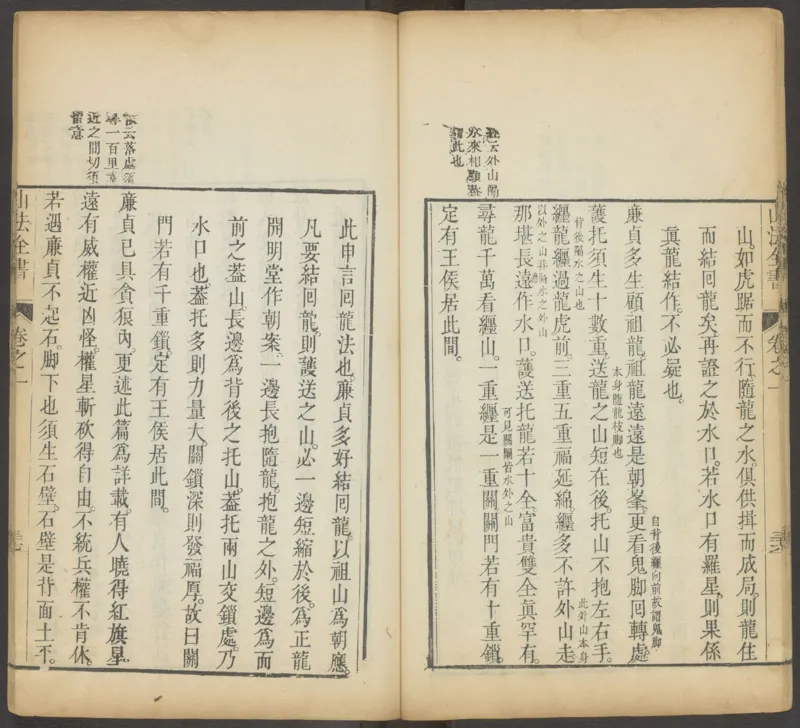 山。如虎踞而不行。隨龍之水。俱供揖而成局。則龍住
而結回龍矣。再證之於水口。若水口有羅星。則果係
眞龍結作。不必疑也。
廉貞多生顧祖龍。祖龍遠遠是朝峯。更看鬼脚回轉處。
自背後纏向前故謂鬼脚
護托須生十數重。送龍之山短在後。托山不抱左右手。
本身隨龍枝脚也
背後隔水之山也
纏龍纏過龍虎前。三重五重福延綿。纏多不許外山走
此外山本身
以外之山非隔水之外山
那堪長遠作水口。護送托龍若十全。富貴雙全眞罕有。
尋龍千萬看纏山。一重纏是一重關。關門若有十重鎖。
可見關闌皆水外之山
定有王侯居此間。
云外山隔
水來相顧
此也
卷之一
此申言回龍法也。廉貞多好結回龍。以祖山爲朝應。
凡要結回龍。則護送之山。必一邊短縮於後。爲正龍
開明堂作朝案。一邊長抱隨龍。抱龍之外。短邊爲面
前之葢山。長邊爲背後之托山。葢托兩山交鎖處。乃
水口也。葢托多則力量大。關鎖深則發福厚。故曰關
門若有千重鎖。定有王侯居此間。
廉貞已具貪狼內。更述此篇爲詳載。有人曉得紅旗星。
遠有威權近凶怪。權星斬砍得自由。不統兵權不肯休。
若遇廉貞不起石。脚下也須生石壁。石壁是背面土平。
云落處須
一百里
近之間切須
留意
山法全書
卷之一